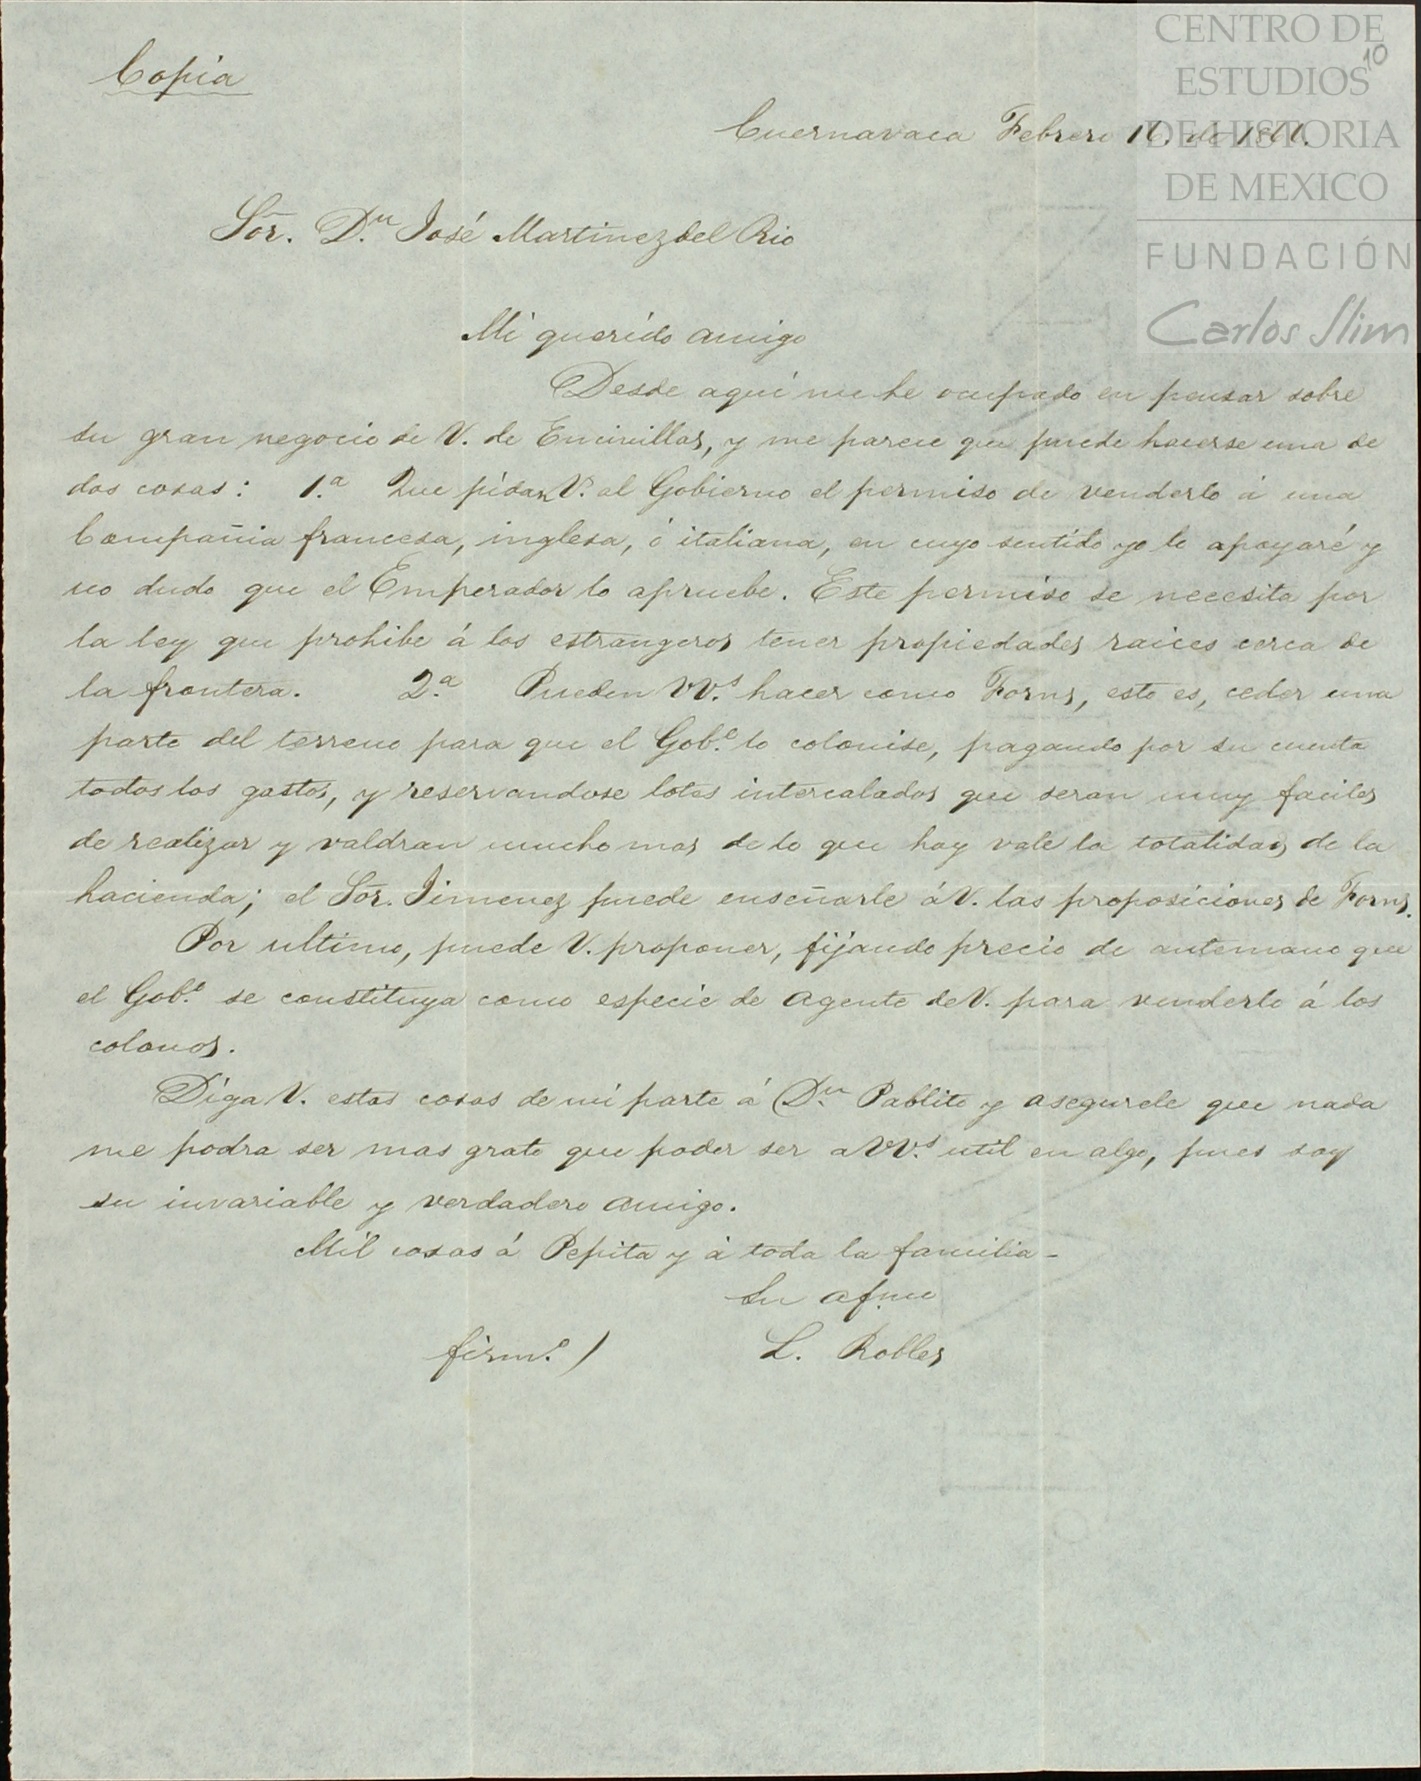 CENTRO DE
ESTUDIOS
DE HISTORIA
DE MEXICO
FUNDACIÓN
Carlos Slim
10
Copia
Cuernavaca Febrero de
Sõr. D.n José Martinez del Rio
Mi querido amigo
Desde aquí me he ocupado en pensar sobre
su gran negocio de V. de Encinillas, y me parece que puede hacerse una de
dos cosas: 1.a Que pidan V.s al Gobierno el permiso de venderlo á una
Compañia francesa, inglesa, ó italiana, en cuyo sentido yo lo apoyaré y
no dudo que el Emperador lo apruebe. Este permiso se necesita por
la ley que prohibe á los estrangeros tener propiedades raices cerca de
la frontera. 2.a Pueden VV.s hacer como Forns, esto es, ceder una
parte del terreno para que el Gob.o lo colonise, pagando por su cuenta
todos los gastos, y reservandose lotes intercalados que seran muy faciles
de realizar y valdran mucho mas de lo que hoy vale la totalidad de la
hacienda; el Sõr. Jimenez puede enseñarle á V. las proposiciones de Forns.
Por ultimo, puede V. proponer, fijando precio de antemano que
el Gob.o se constituya como especie de agente de V. para venderlo á los
colonos.
Diga V. estas cosas de mi parte á D.n Pablito y asegurele que nada
me podra ser mas grato que poder ser a VV.s util en algo, pues soy
su invariable y verdadero amigo.
Mil cosas á Pepita y á toda la familia-
Su afmo
firm.o) L. Robles